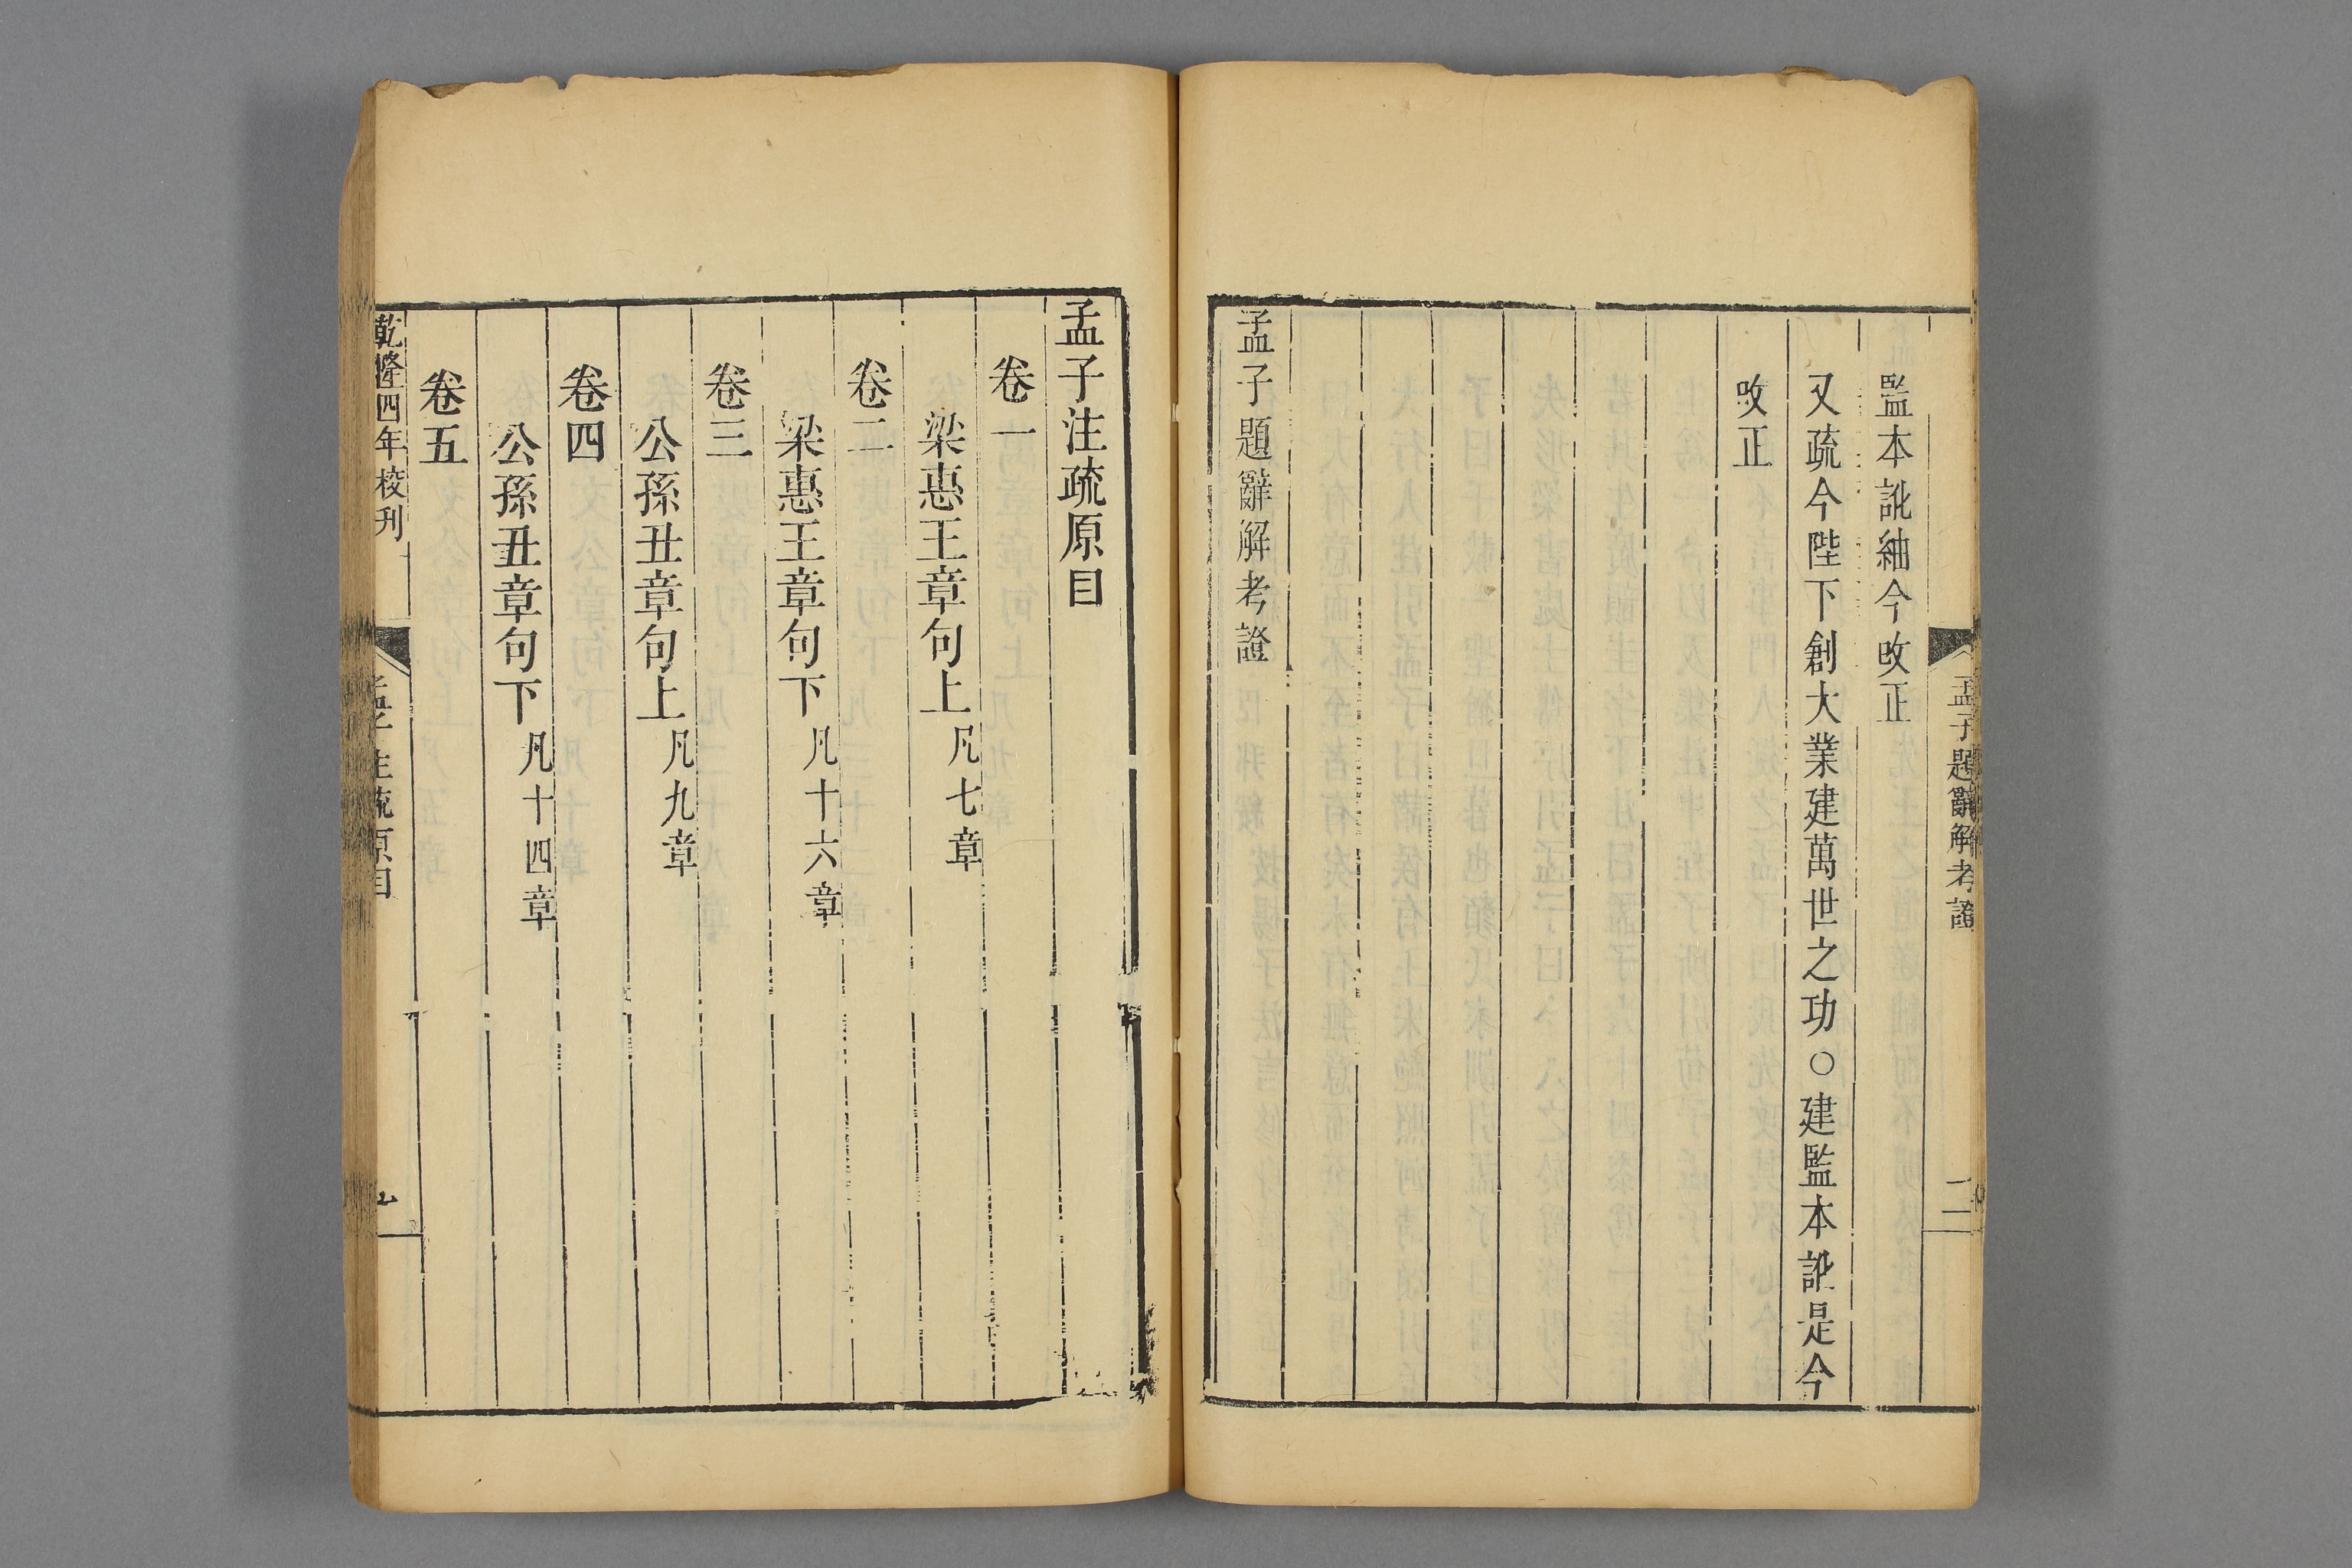 孟子題辭解考證
二
監本訛紬今攺正
又疏今陛下創大業建萬世之功○建監本訛是今
攺正
孟子題辭解考證
孟子注疏原目
卷一
梁惠王章句上凡七章
卷二
梁惠王章句下凡十六章
卷三
公孫丑章句上凡九章
卷四
公孫丑章句下凡十四章
卷五
乾隆四年校刊
孟子注疏原目